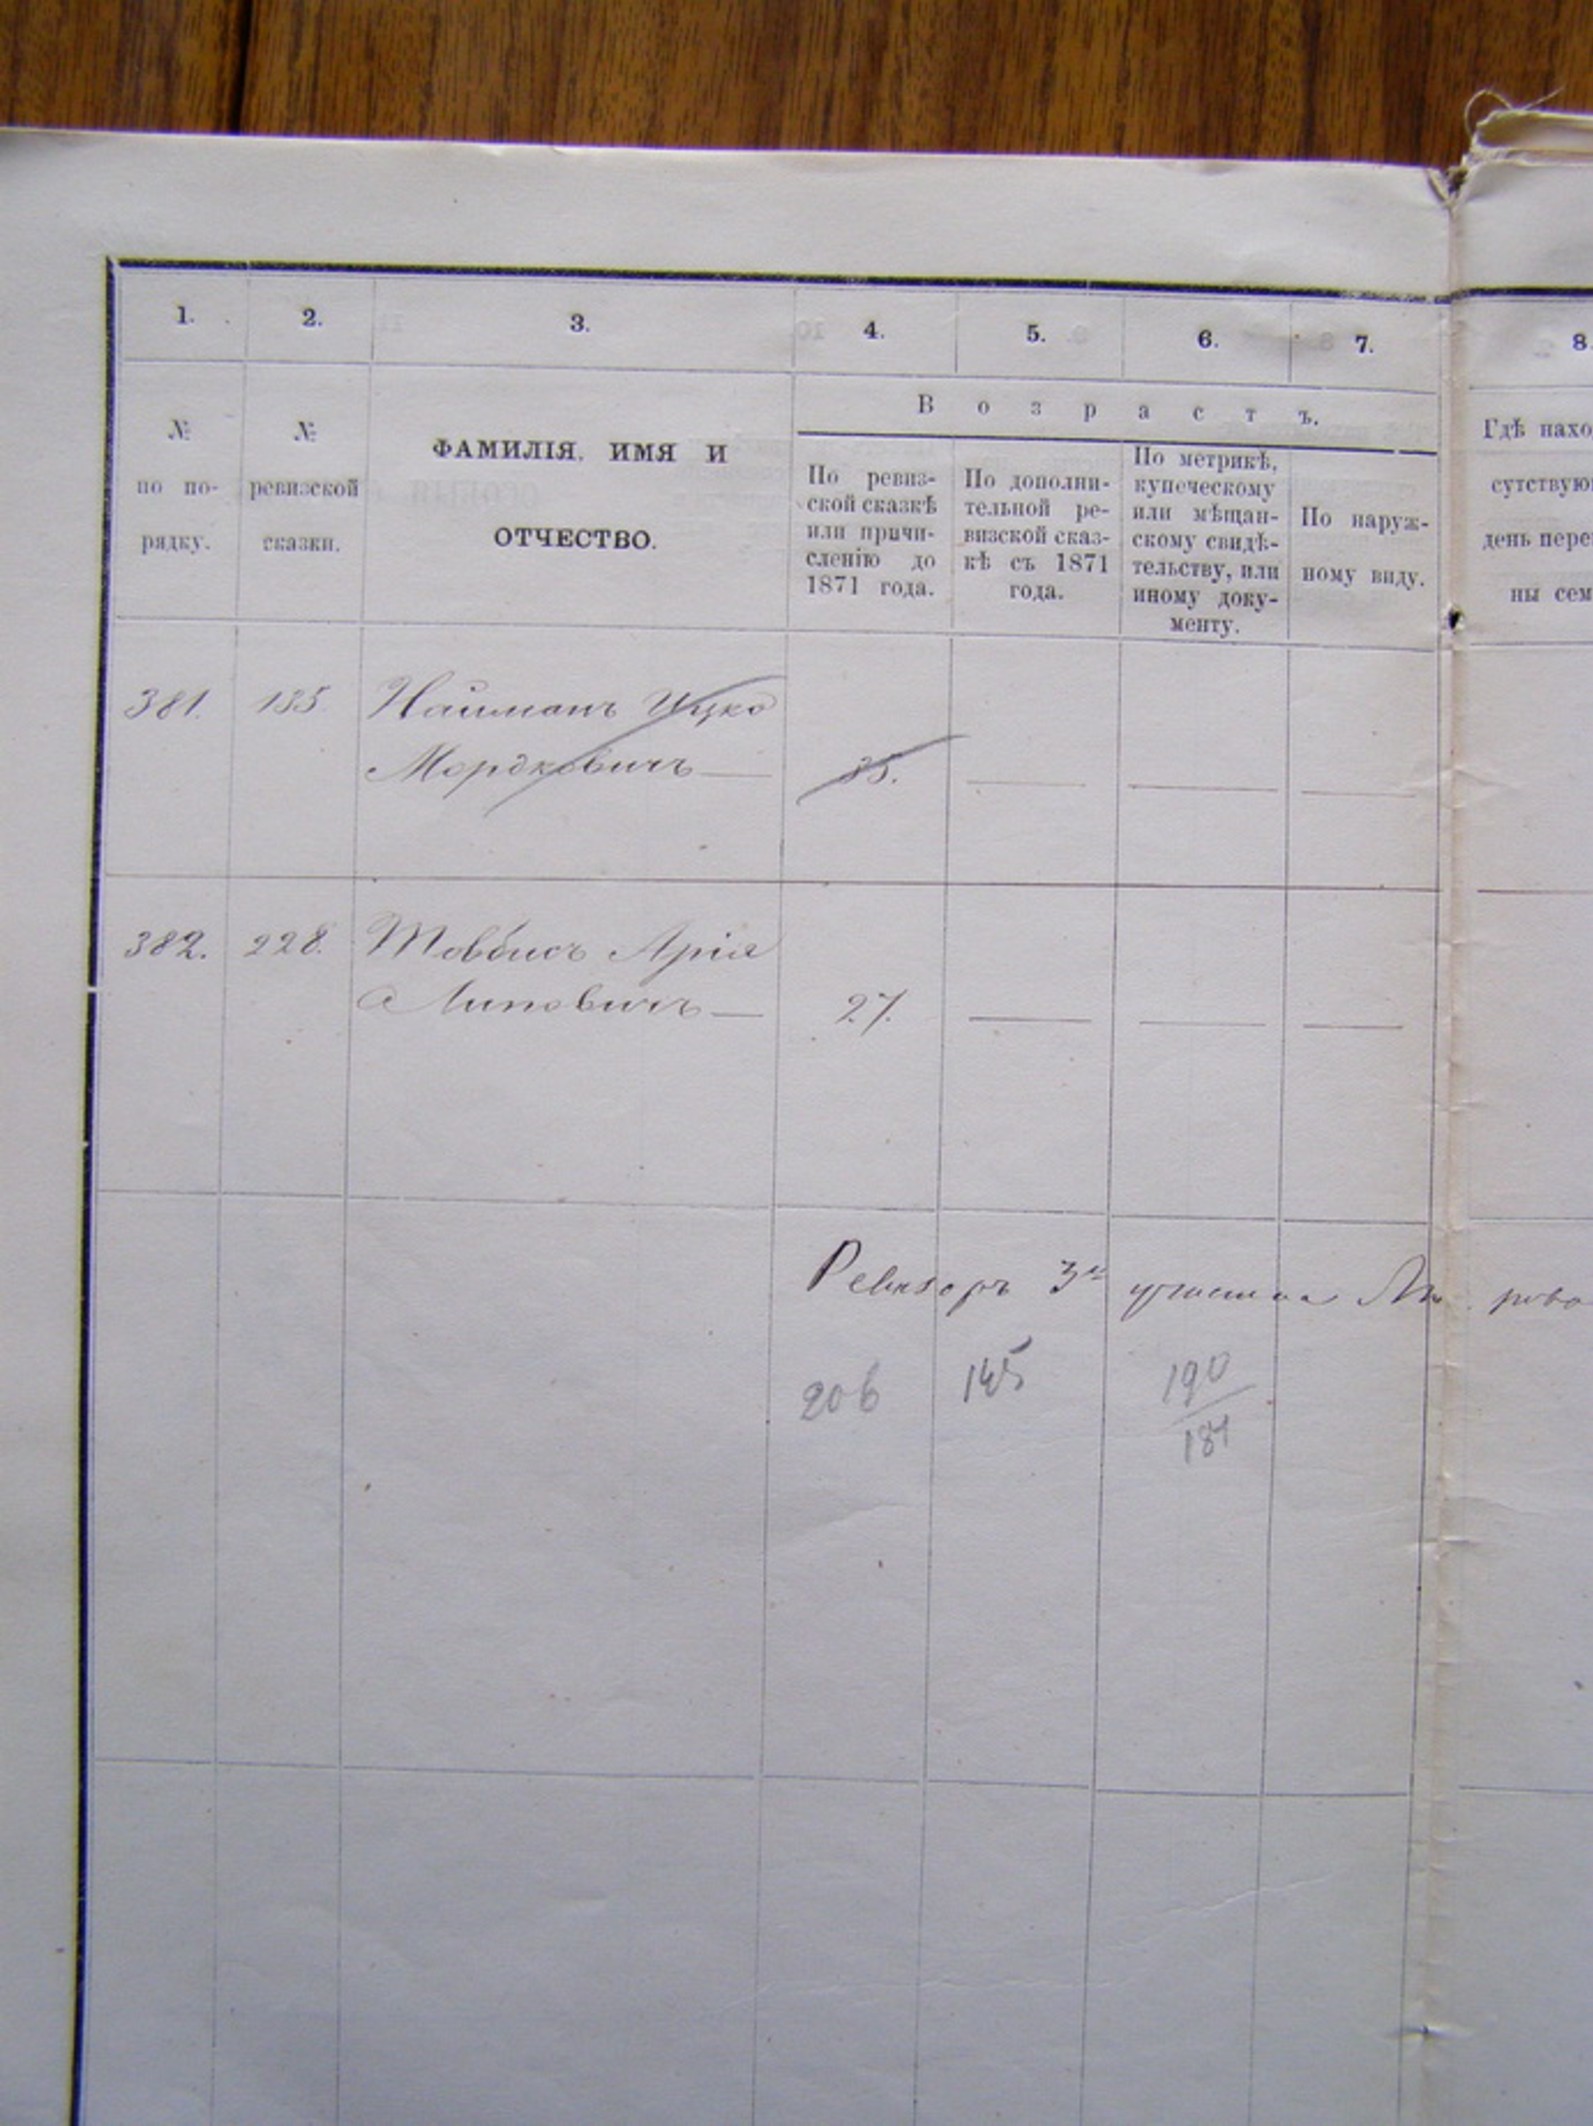 1. 2. 3. 4. 5. 6. 7. 8.
№ по по-
рядку.
№
ревизской
сказки.
ФАМИЛІЯ, ИМЯ И
ОТЧЕСТВО.
Возрастъ.
По ревиз-
ской сказкѣ
или причи-
сленію до
1871 года.
По дополни-
тельной ре-
визской сказ-
кѣ съ 1871
года.
По метрикѣ,
купеческому
или мѣщан-
скому свидѣ-
тельству, или
иному доку-
менту.
По наруж-
ному виду.
Гдѣ нахо
сутствую
день пере
ны сем
381. 135 Найманъ Ицко
Мордковичъ — 35. — — —
382. 228. Товбисъ Арія
Липовичъ — 27. — — —
Ревизоръ 3го участка
206 145 190
181